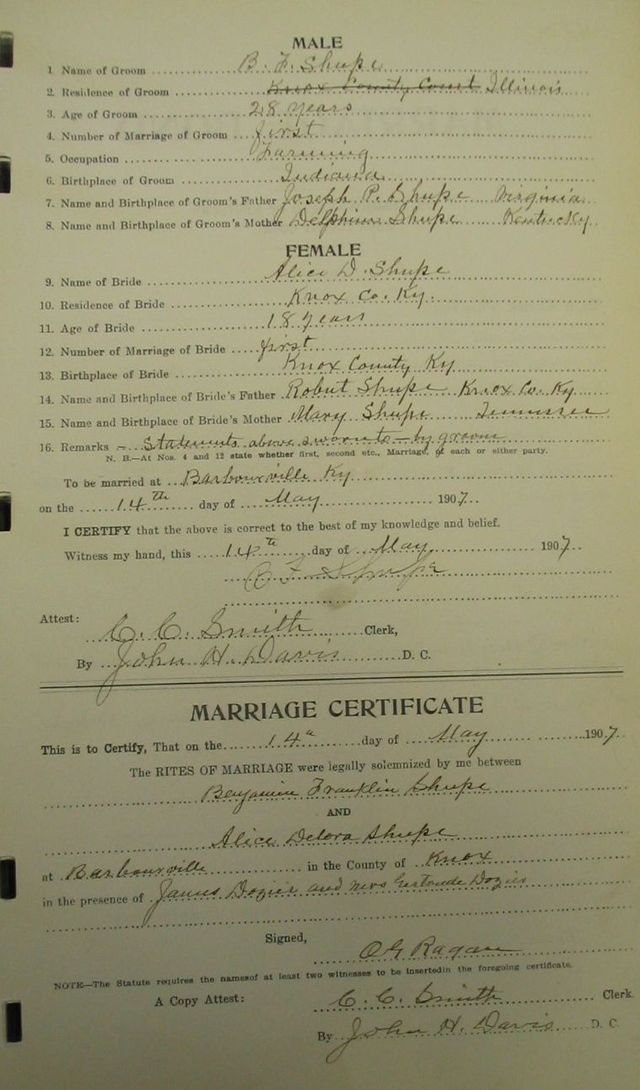 MALE
1 Name of Groom B. F. Shupe
2. Residence of Groom Knox County Court Illinois
3. Age of Groom 28 years
4. Number of Marriage of Groom first
5. Occupation Farming
6. Birthplace of Groom Indiana
7. Name and Birthplace of Groom's Father Joseph P. Shupe Virginia
8. Name and Birthplace of Groom's Mother Delphina Shupe Kentucky
FEMALE
9. Name of Bride Alice D. Shupe
10. Residence of Bride Knox Co. Ky.
11. Age of Bride 18 years
12. Number of Marriage of Bride first
13. Birthplace of Bride Knox County Ky
14. Name and Birthplace of Bride's Father Robert Shupe Knox Co. Ky
15. Name and Birthplace of Bride's Mother Mary Shupe Tennessee
16. Remarks - Statements above sworn to - by groom
N. B.—At Nos. 4 and 12 state whether first, second etc., Marriage, of each or either party.
To be married at Barbourville Ky
on the 14th day of May 1907
I CERTIFY that the above is correct to the best of my knowledge and belief.
Witness my hand, this 14th day of May 1907
F Shupe
Attest:
C. C. Smith Clerk,
By John H. Davis D. C.
MARRIAGE CERTIFICATE
This is to Certify, That on the 14th day of May 1907
The RITES OF MARRIAGE were legally solemnized by me between
Benjamin Franklin Shupe
AND
Alice Delora Shupe
at Barbourville in the County of Knox
in the presence of James Dozier and Mrs Gertrude Dozier
Signed,
O G Ragan
NOTE—The Statute requires the namesof at least two witnesses to be insertedin the foregoing certificate.
A Copy Attest: C. C. Smith Clerk
By John H. Davis D. C.